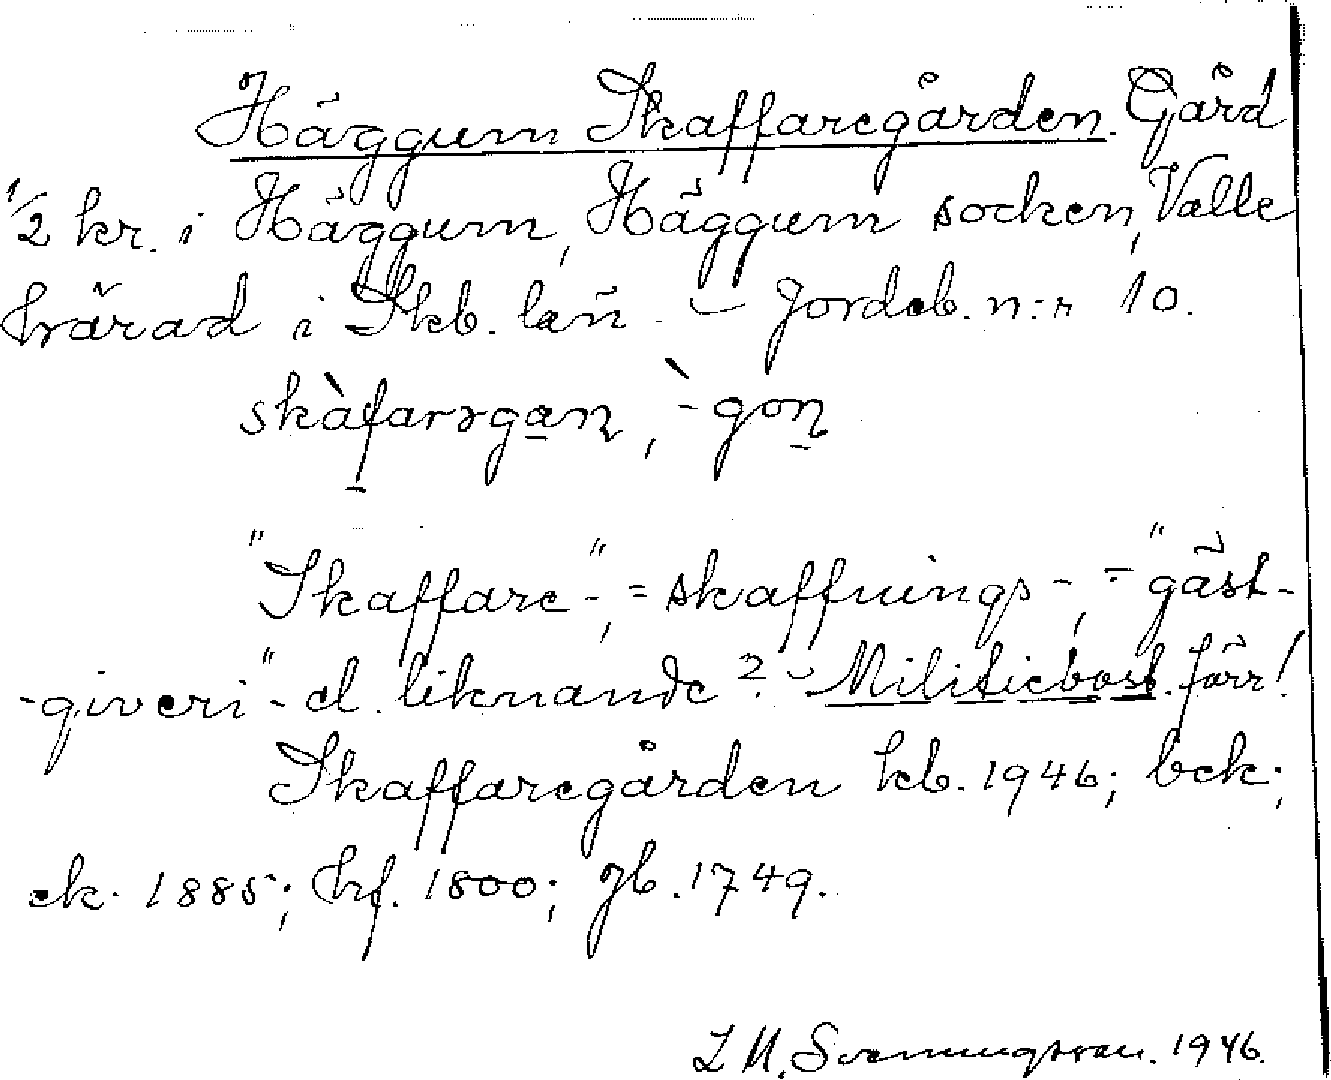 Häggum Skaffaregården. Gård
1/2 kr. i Häggum, Häggum socken, Valle
härad i Skb. län. – Jordeb. n:r 10.
skàfarəgan, `-gon
"Skaffare-", = skaffnings-, = "gäst-
-giveri"- el. liknande? – Militiebost. förr!
Skaffaregården kb. 1946; bek;
ek. 1885; hf. 1800; jb. 1749.
1946.